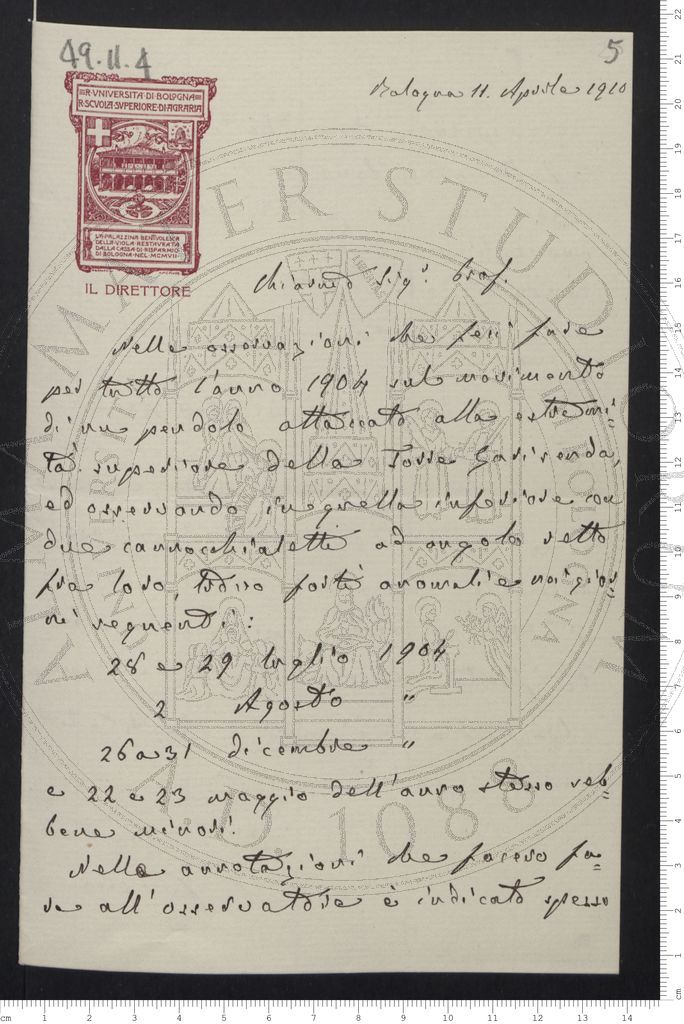 49.II.4
5
R·VNIVERSITÀ·DI·BOLOGNA
R·SCVOLA·SVPERIORE·DI·AGRARIA
LA·PALAZZINA·BENTIVOLESCA
DELLA·VIOLA·RESTAVRATA
DALLA·CASSA·DI·RISPARMIO
DI·BOLOGNA·NEL·MCMVII
IL DIRETTORE
Bologna 11. Aprile 1910
Chiarmo Sigr. Prof.
Nelle osservazioni che feci fare
per tutto l'anno 1904 sul movimento
di un pendolo attaccato alla estremi-
tà superiore della Torre Garisenda,
ed osservando in quella inferiore con
due cannocchialetti ad angolo retto
fra loro, forti anomalie nei gior-
ni seguenti:
28 e 29 luglio 1904
2 Agosto "
26 a 31 dicembre "
e 22 e 23 maggio dell'anno stesso seb-
bene minori.
Nelle annotazioni che facevo fa-
re all'osservatore è indicato spesso
ALMA MATER STUDIORUM
A.D. 1088